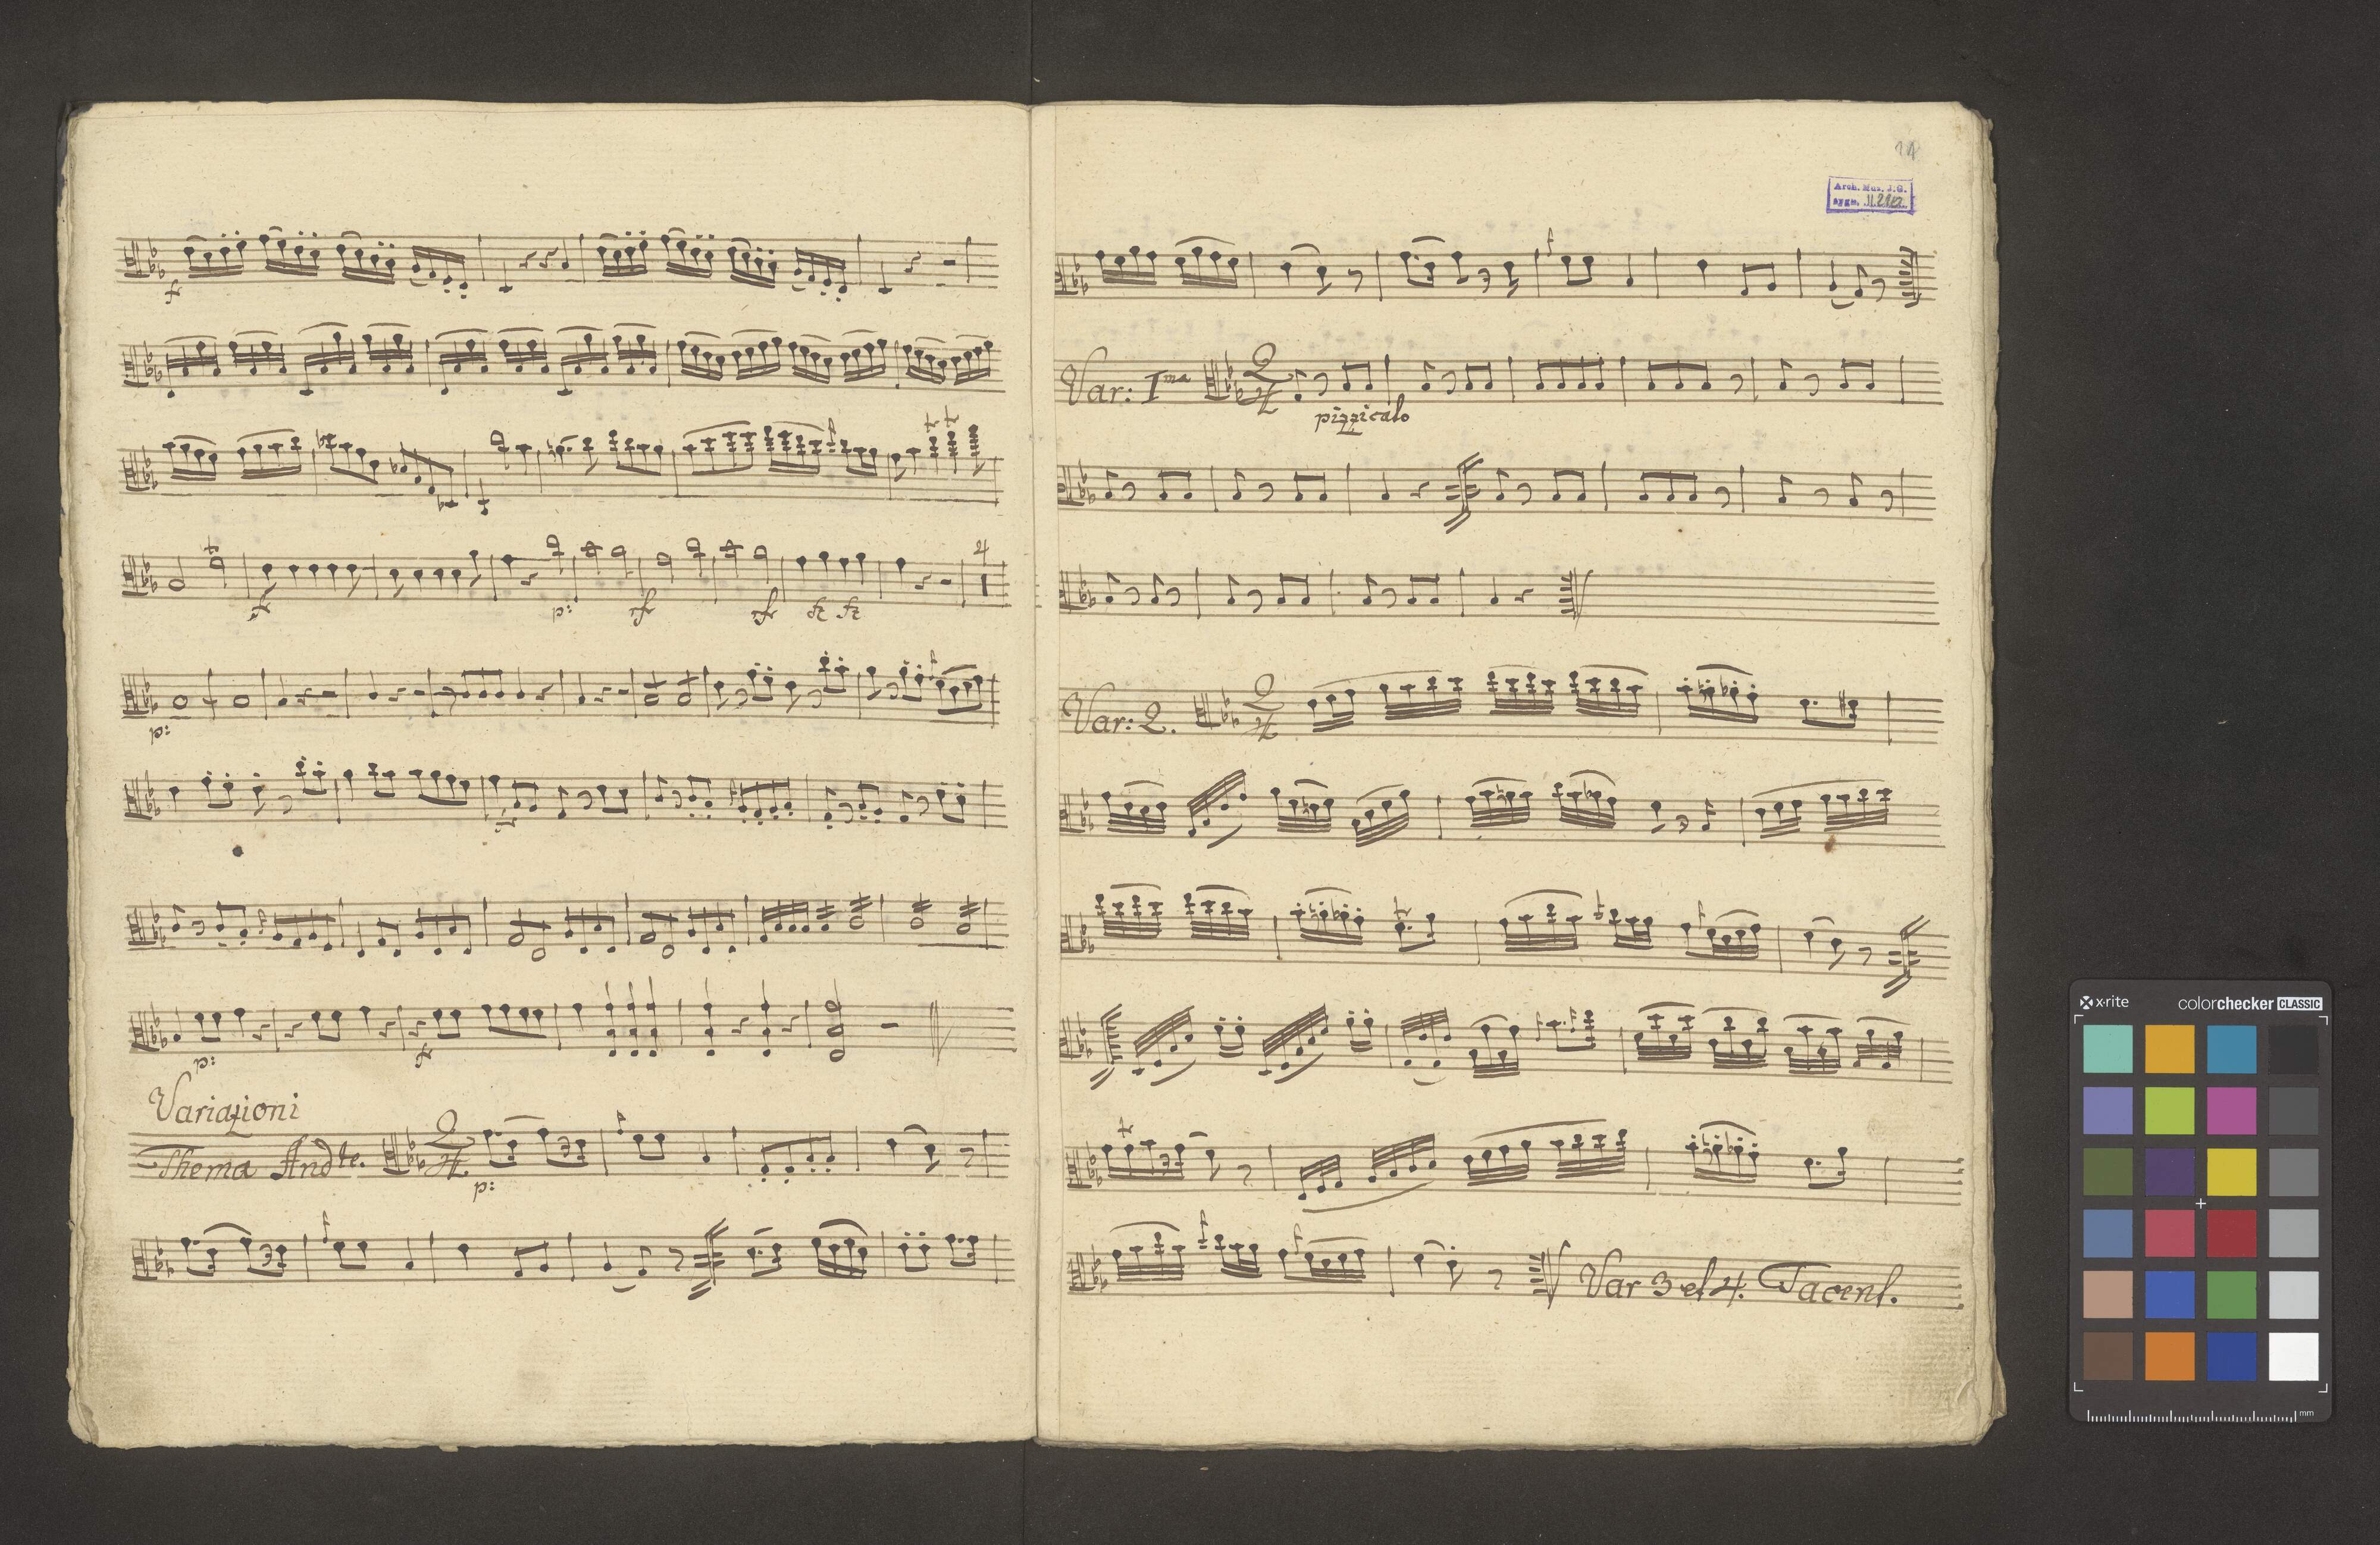 fr
p: rfr rfr fz fz
fr
4
p:
p: fr
Variazioni
Thema Andte. 2/4
p:
14
Arch. Mus. J.G.
sygn. II.
Var: Ima 2/4
pizzicato
Var: 2. 2/4
Var 3 et 4. Tacent.
x-rite colorchecker CLASSIC
mm